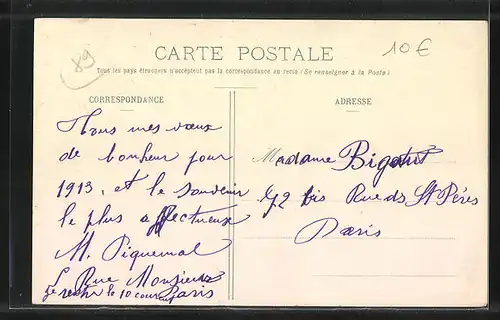 89
10€
CARTE POSTALE
Tous les pays étrangers n'acceptent pas la correspondance au recto (Se renseigner à la Poste)
CORRESPONDANCE
Tous mes vœux
de bonheur pour
1913, et le souvenir
le plus affectueux
M. Piquemal
Rue Monsieur
je rentre le 10 courant Paris
ADRESSE
Madame
bis Rue des Sts Pères
Paris